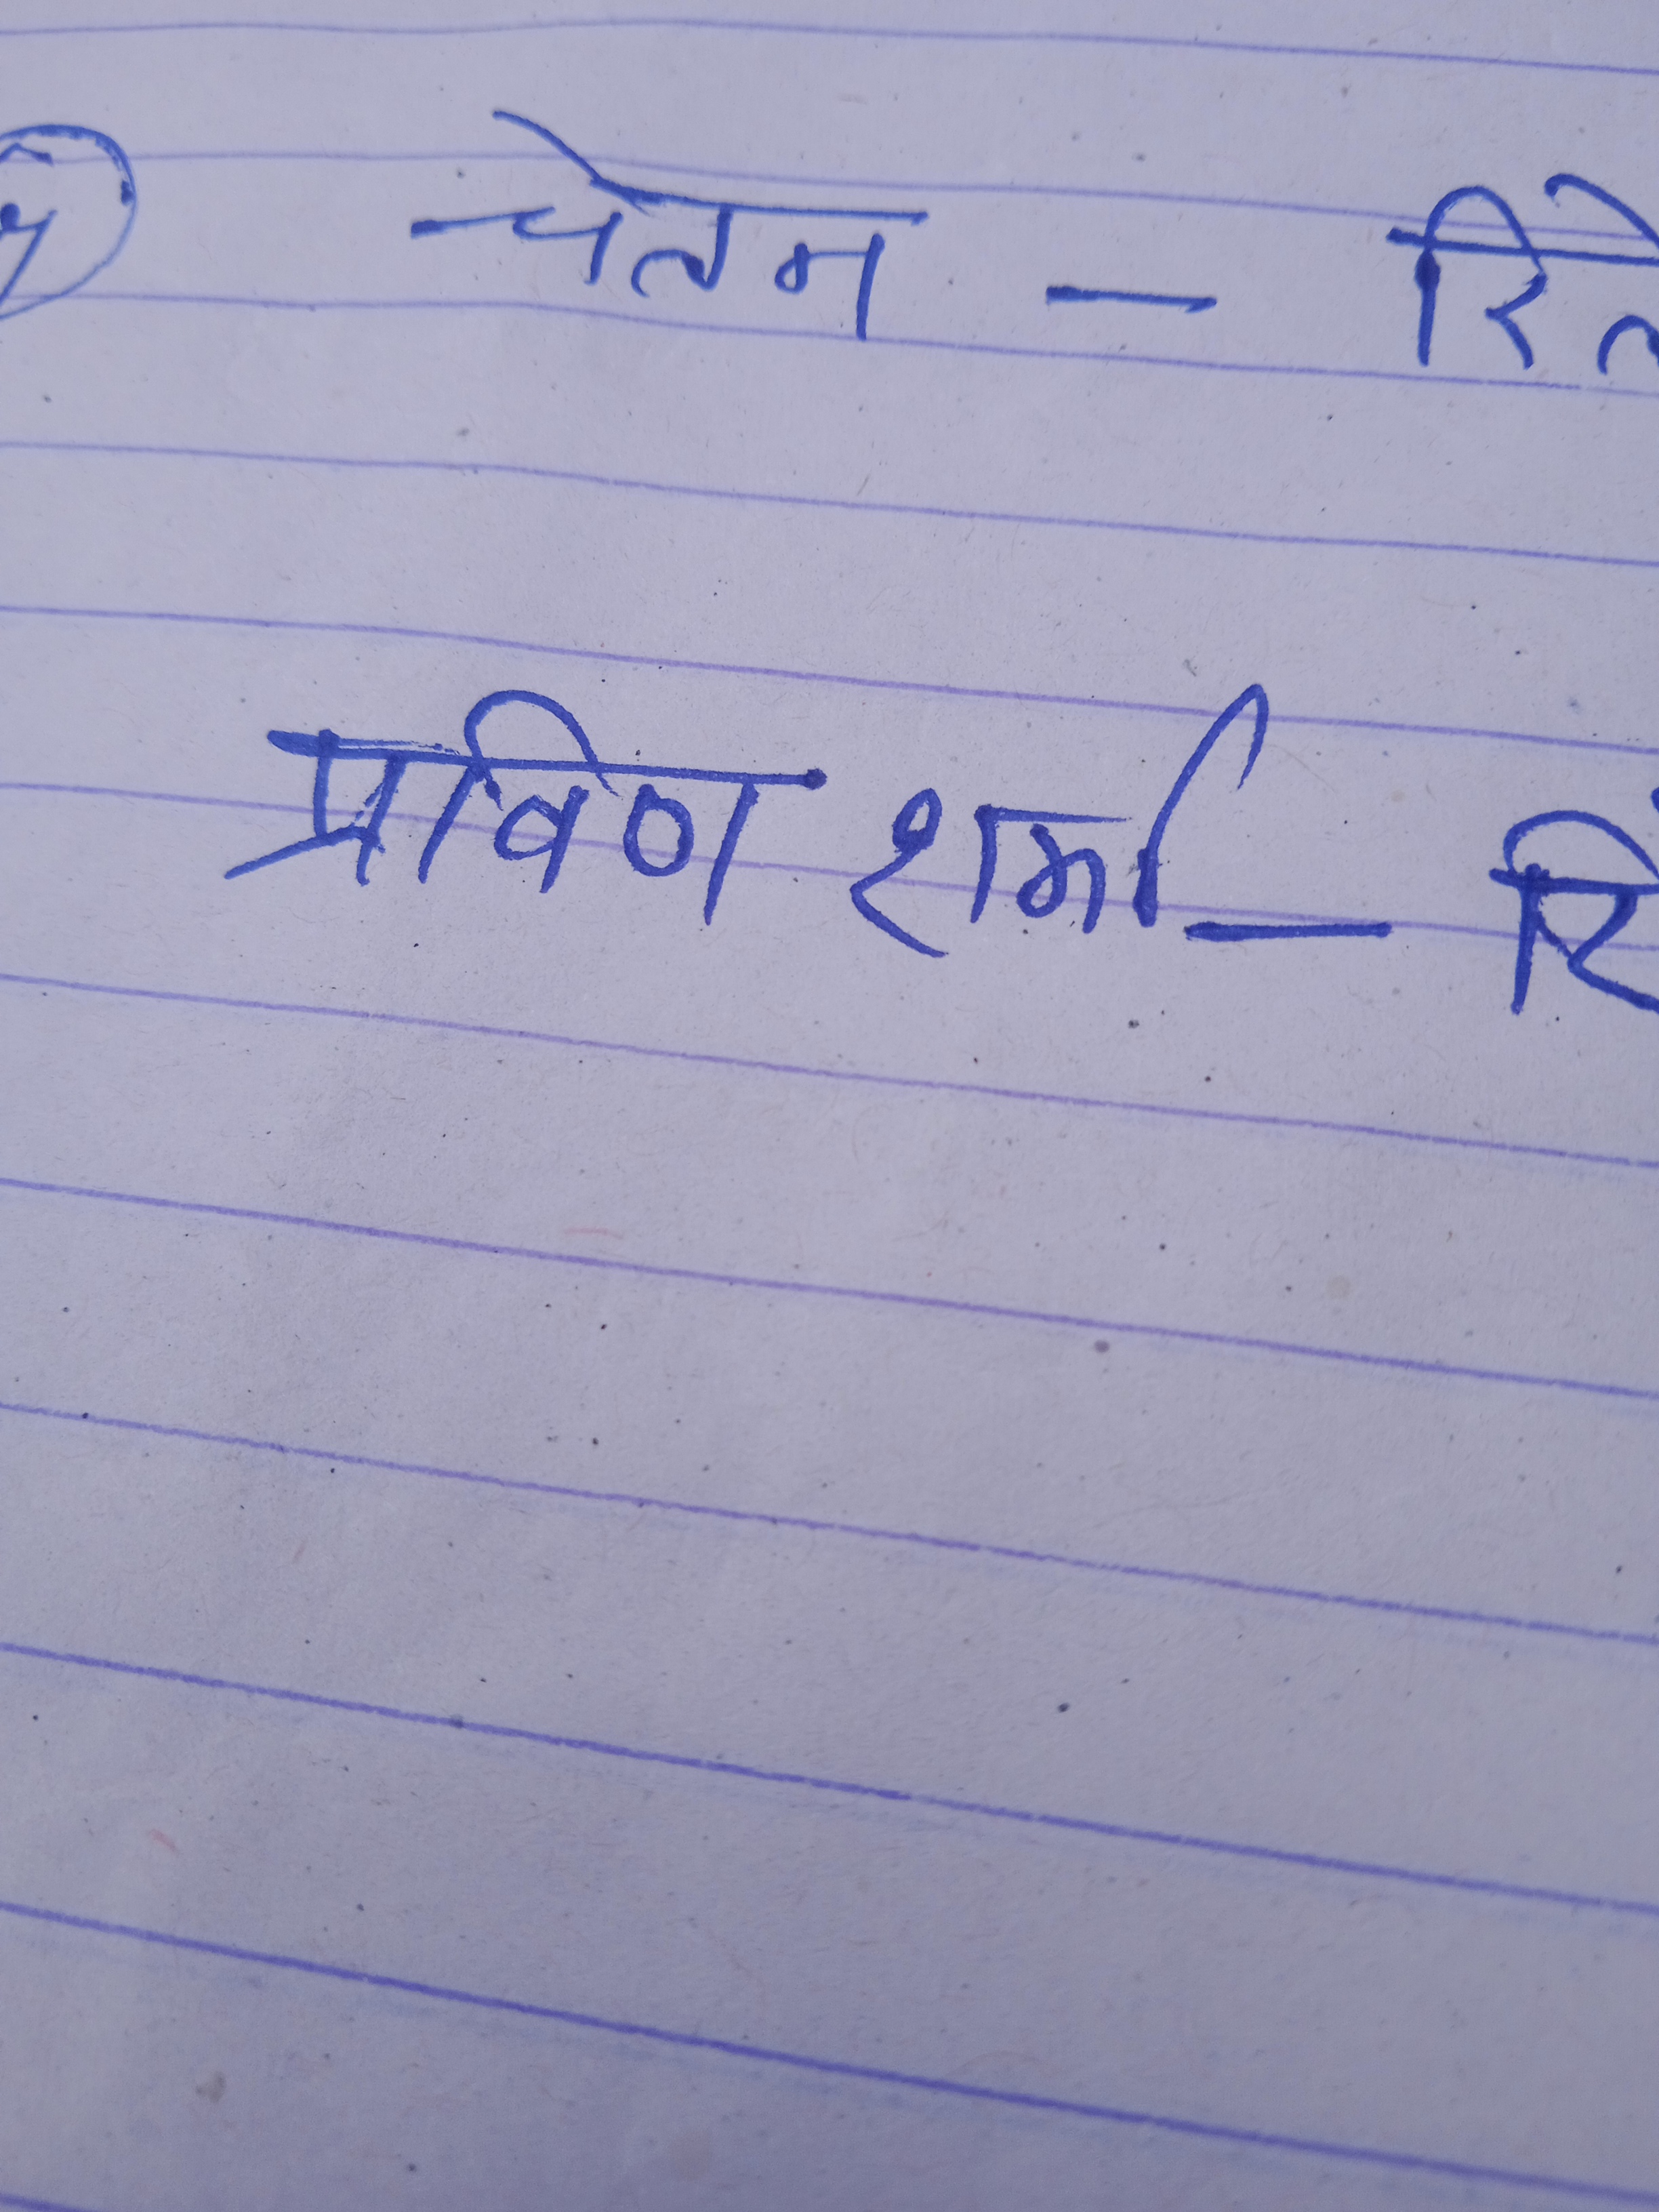 ५ चेतन - रिते
प्रविण शर्मा - रि